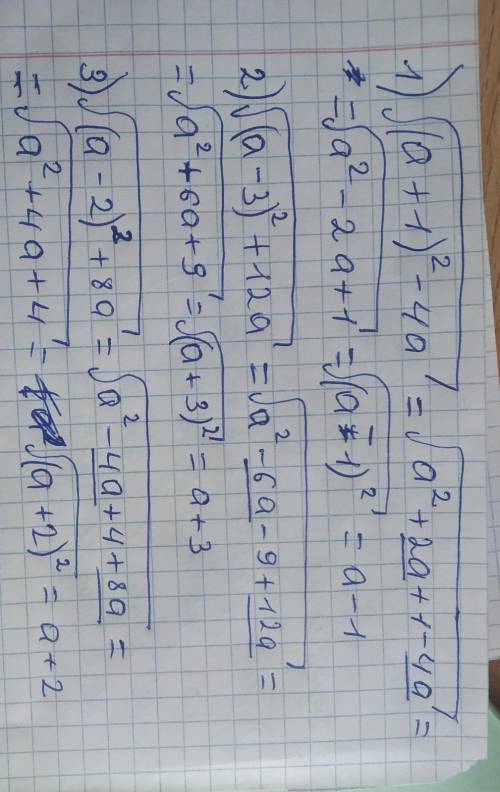 1) √(a+1)² - 4a = √a² + 2a + 1 - 4a =
= √a² - 2a + 1 = √(a - 1)² = a - 1
2) √(a - 3)² + 12a = √a² - 6a - 9 + 12a =
= √a² + 6a + 9 = √(a + 3)² = a + 3
3) √(a - 2)² + 8a = √a² - 4a + 4 + 8a =
= √a² + 4a + 4 = √(a + 2)² = a + 2